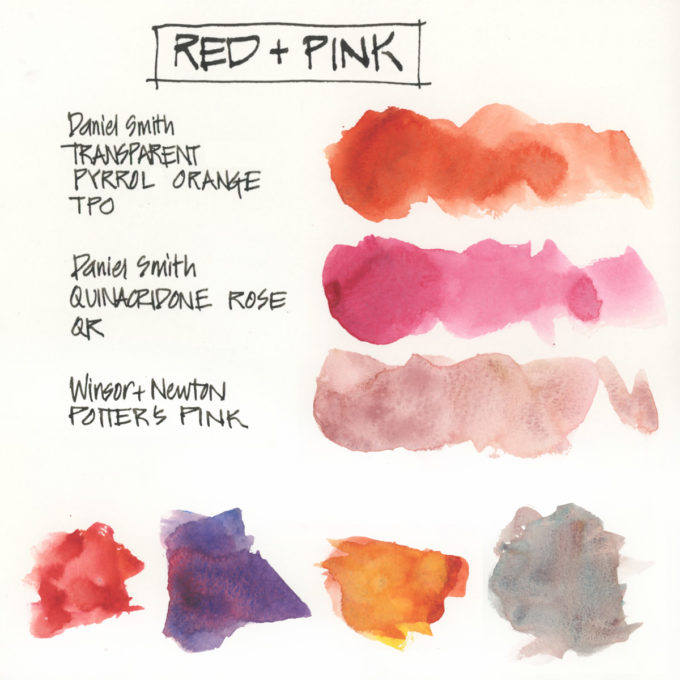 RED + PINK
Daniel Smith
TRANSPARENT
PYRROL ORANGE
TPO
Daniel Smith
QUINACRIDONE ROSE
QR
Winsor + Newton
POTTER'S PINK